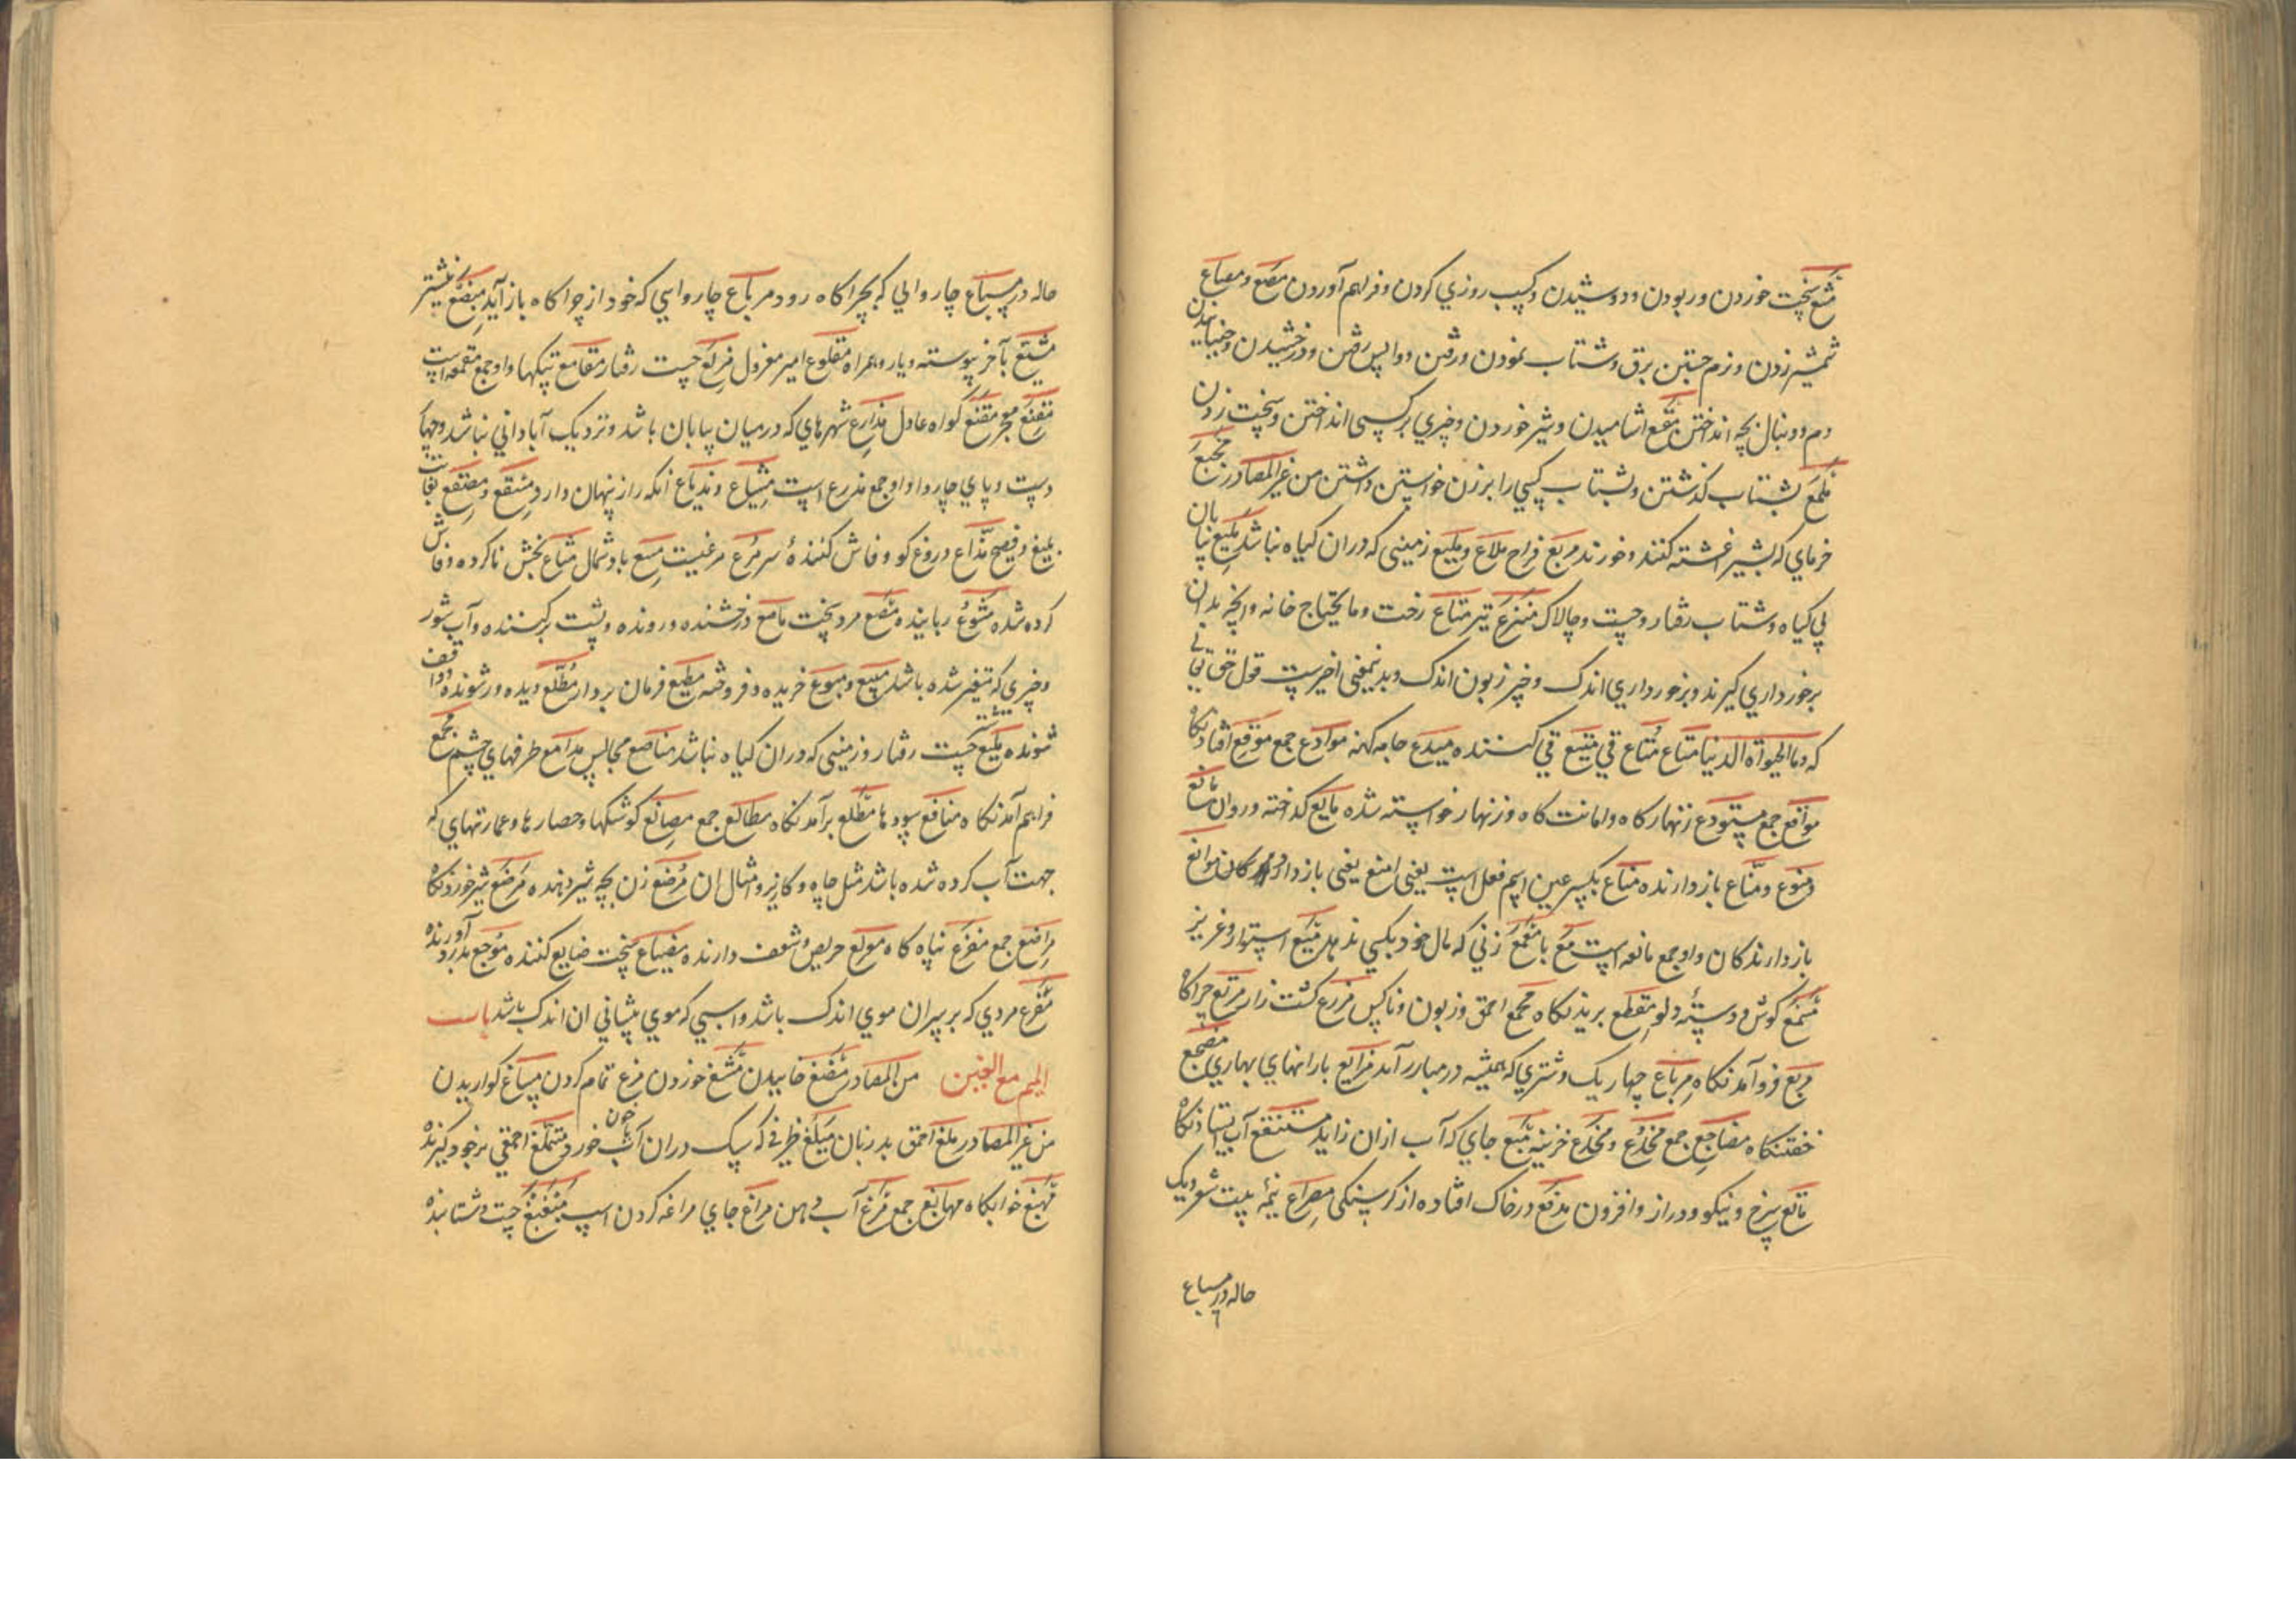 مشع سخت خوردن و ربودن و دوشیدن و کسب روزي کردن و فراهم آوردن مصع و مصاع
شمشیر زدن و نرم جستن برق و شتاب نمودن و رفتن و واپس رفتن و درخشیدن و جنبانیدن
دم و دنبال بچه انداختن مقع اشامیدن و شیر خوردن و چیزي بر کسی انداختن و سخت زدن
ملع بشتاب کذشتن و بشتاب کسي را بزدن خواستن داشتن من غیر المصادر مجیع
خرماي که بشیر اغشته کنند و خورند مریع فراخ ملاع و ملیع زمینی که دران کیاه نباشد ملیع بیابان
بي کیاه و شتاب رفتار و چست و چالاک منزع تیر متاع رخت و ما یحتاج خانه و انچه بدان
برخورداري کیرند و برخورداري اندک و چیز زبون اندک و بدینمعنی اخیرست قول حق تعالی
که وما الحیوة الدنیا متاع متاع قي متیع قي کننده میدع جامه کهنه موادع جمع موقع افتادنکاه
مواقع جمع مستودع زنهار کاه و امانت کاه و زنهار خواسته شده مایع کداخته و روان مانع
و منوع و مناع باز دارنده مناع بکسر عین اسم فعل است یعنی امنع یعنی باز دار موانع
باز دارندکان و او جمع مانعه است مع با مقمع زني که مال خود بکسي ندهد منیع استوار و عزیز
مسمع کوش و دسته دلو مقطع بریدنکاه مجمع احمق و زبون و ناکس مزرع کشت زار مرتع چراکاه
مربع فرود آمدنکاه مرباع چهار یک و شتري که همیشه در مبارر آمد مرابع بارانهاي بهاري مضجع
خفتنکاه مضاجع جمع مخدع و مخدع خزینه منبع جاي که آب ازان زاید مستنقع آب ایستادنکاه
ماتع سرخ و نیکو و دراز و افزون مدقع در خاک افتاده از کرسنکی مصراع نیمه بیت شعر و یک
حاله در مسباع
حاله در مسباع چاروایي که بچراکاه رود مرباع چاروایي که خود از چراکاه باز آید مبضع نشتر
مشیع بآخر پیوسته و یار و همراه مقلوع امیر معزول مزلع چست رفتار مقامع تپکها و او جمع مقمعه است
مقنع معجر مقنع کواه عادل مذارع شهرهاي که درمیان بیابان باشد و نزدیک آباداني نباشد و چهار
دست و پاي چاروا و او جمع مذرع است مشیاع و مذیاع انکه راز پنهان دارد مسقع و مصقع بغایت
بلیغ و فصیح مذاع دروغ کو و فاش کننده سر مرع مرغیست مسع باد شمال مشاع بخش ناکرده و فاش
کرده شده مشوع رباینده مصع مرد سخت ماصع درخشنده و رونده و پشت بر کننده و آب شور
و چیزي که متغیر شده باشد مبیع و مبیوع خریده و فروخته مطیع فرمان بردار مطلع دیده ور شونده و واقف
شونده ملیع چست رفتار و زمینی که دران کیاه نباشد مناصع مجالس مدامع طرفهاي چشم مجمع
فراهم آمدنکاه منافع سودها مطلع برآمدنکاه مطالع جمع مصانع کوشکها و حصارها و عمارتهاي که
جهت آب کرده شده باشد مثل چاه و کاریز و امثال ان مرضع زن بچه شیر دهنده مرضع شیر خوردنکاه
مراضع جمع مفزع پناه کاه مولع حریص و شعف دارنده مضیاع سخت ضایع کننده موجع بدرد آورنده
مقزع مردي که بر سر ان موي اندک باشد و اسبي که موي پیشاني ان اندک باشد باب
المیم مع الغین من المصادر مضغ خاییدن مشغ خوردن مرغ تمام کردن مساغ کواریدن
من غیر المصادر ملغ احمق بد زبان میلغ ظرفي که سک دران آب خورد متملغ احمقي برخود کیرنده
مهبغ خوابکاه مهابغ جمع مرغ آب دهن مراغ جاي مراغه کردن اسپ مبغبغ چست و شتابنده